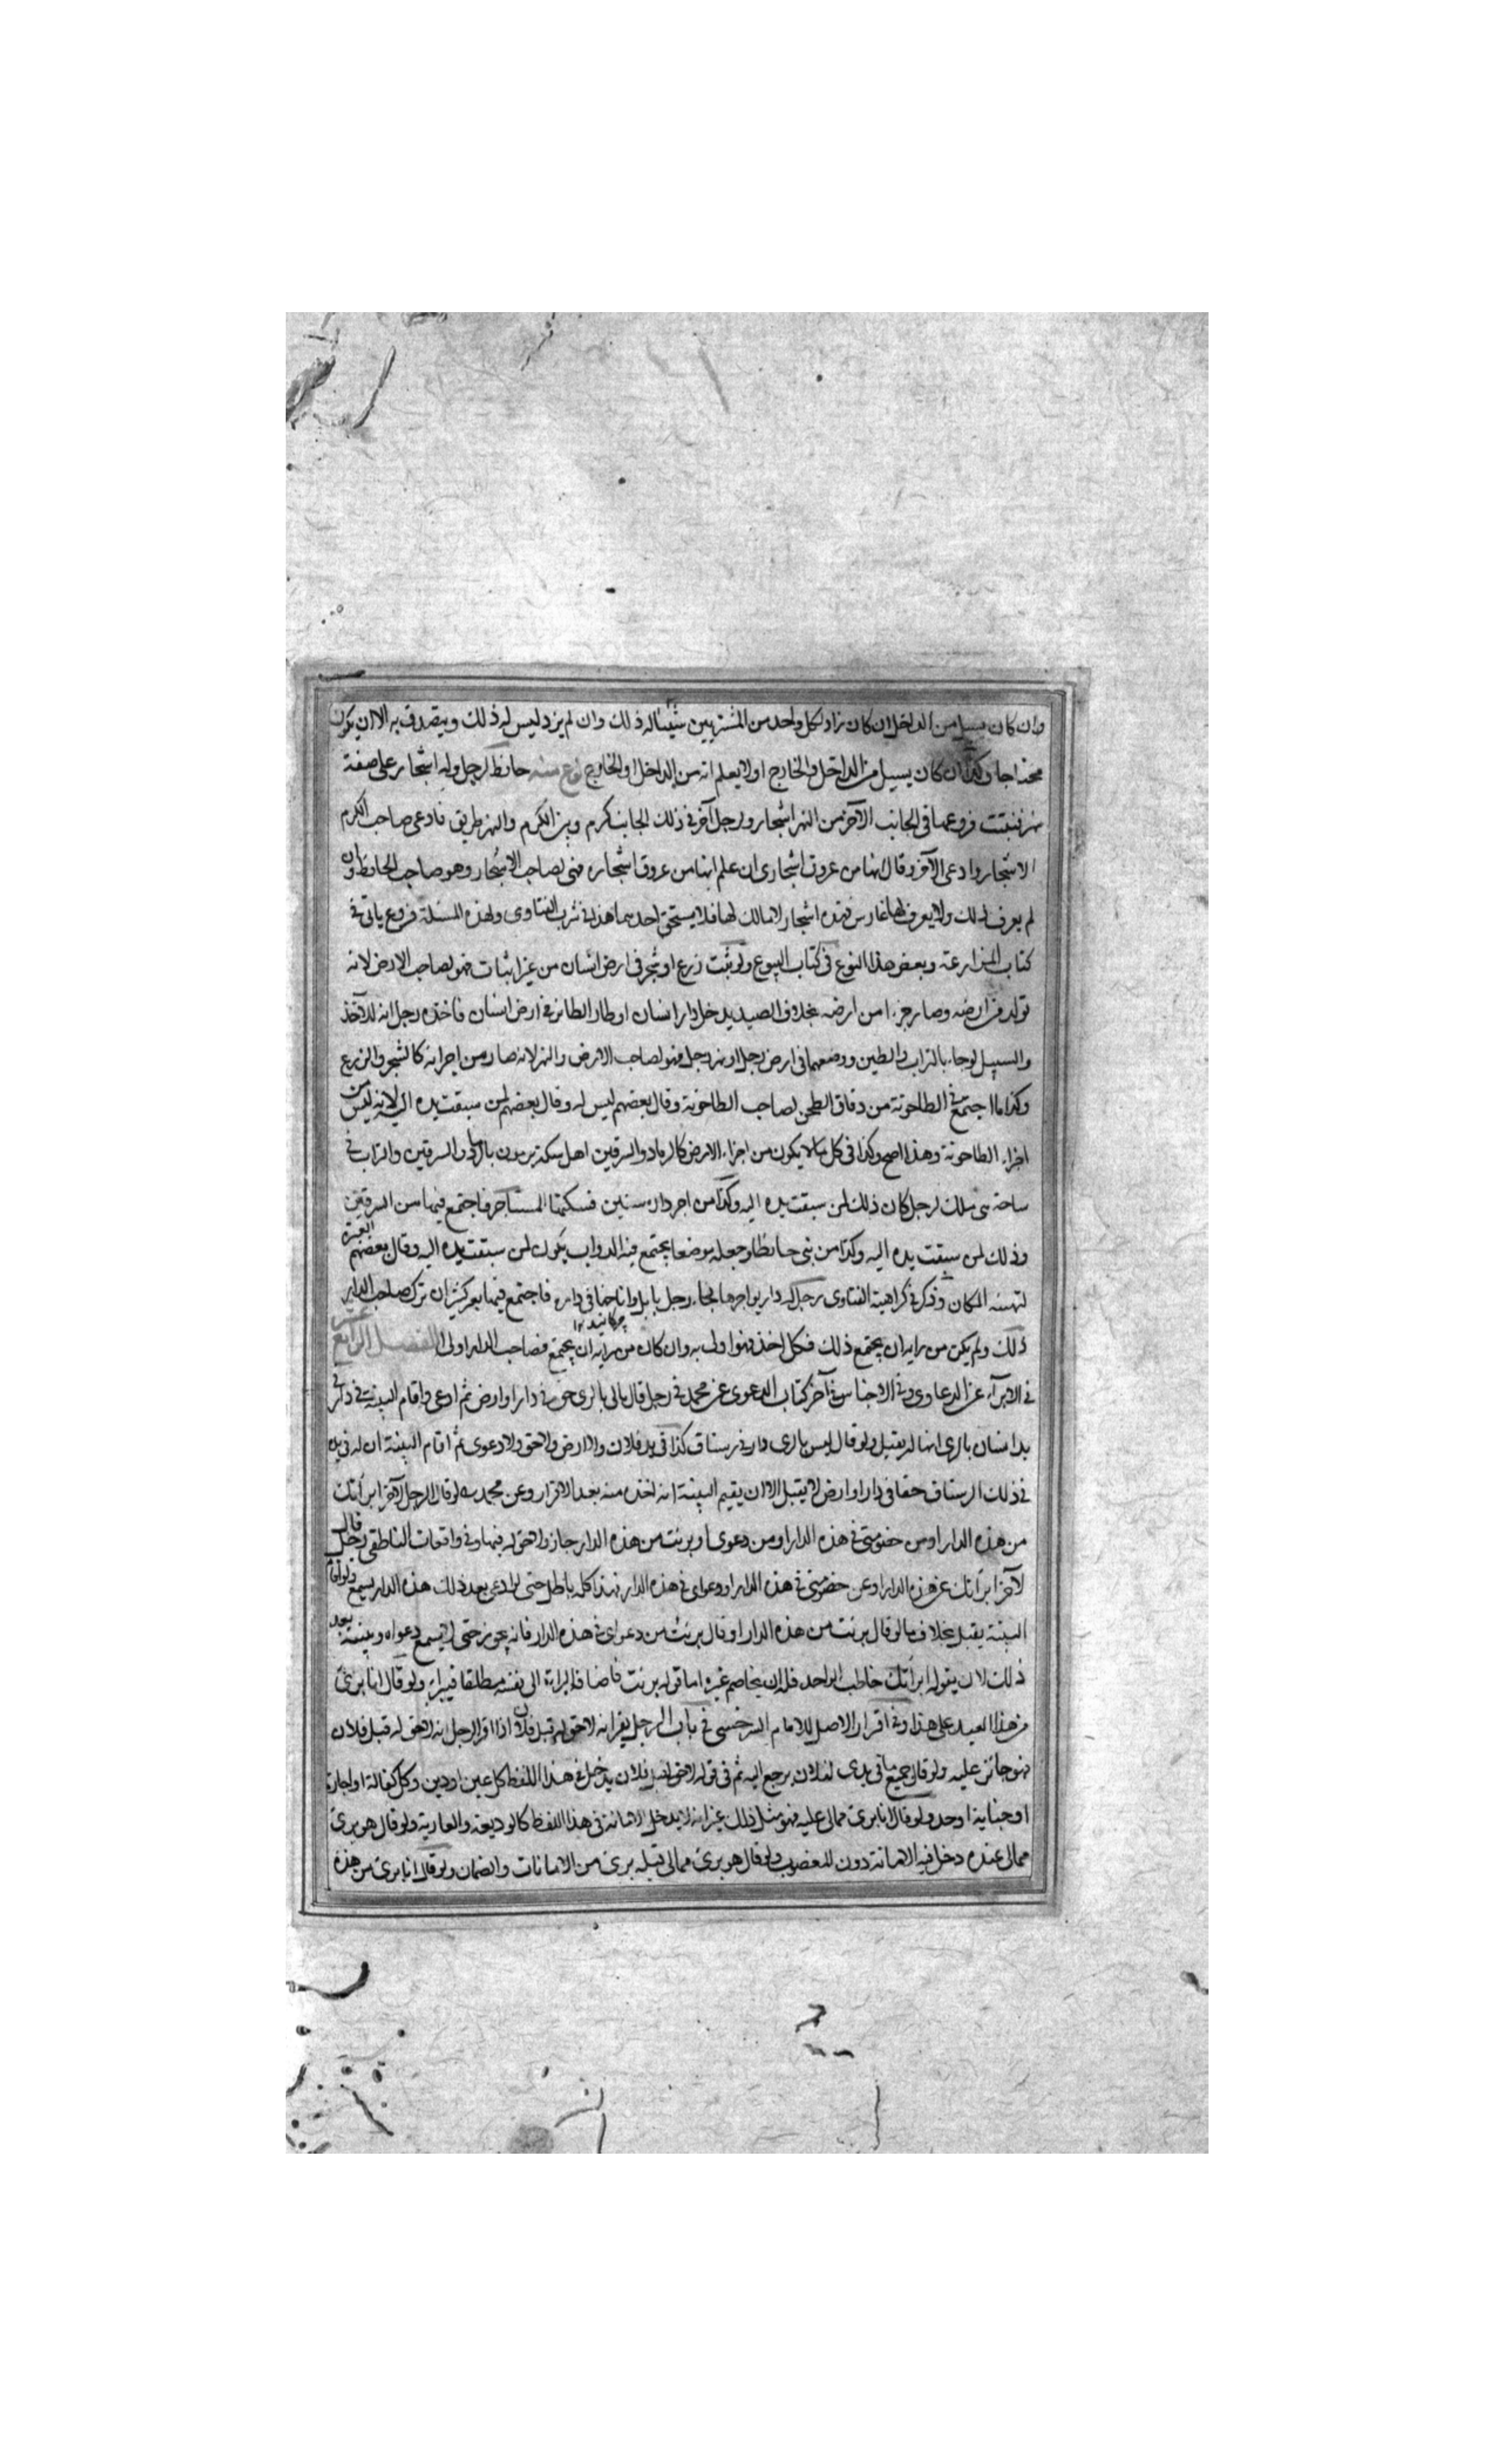 وان كان يسيل من الداخل ان كان زاد لكل واحد من المشتريين شيئا له ذلك وان لم يزد ليس له ذلك ويتصدق به الا ان يكون
محتاجا وكذا ان كان يسيل من الداخل والخارج او لا يعلم انه من الداخل او الخارج نوع منه حائط لرجل وله اشجار على ضفة
نهر فنبتت فروعها في الجانب الآخر من النهر اشجار ولرجل آخر في ذلك الجانب كرم وبين الكرم والنهر طريق فادعى صاحب الكرم
الاشجار وادعى الآخر وقال انها من عروق اشجارى ان علم انها من عروق اشجاره فهى لصاحب الاشجار وهو صاحب الحائط وان
لم يعرف ذلك ولا يعرف لها غارس فهذه اشجار لا مالك لها فلا يستحق احدهما هذا في شرب الفتاوى ولهذه المسئلة فروع ياتى في
كتاب المزارعة وبعض هذا النوع في كتاب البيوع ولو نبت زرع او شجر في ارض انسان من غير انبات فهو لصاحب الارض لانه
تولد من ارضه وصار جزءا من ارضه بخلاف الصيد يدخل دار انسان او طار الطائر في ارض انسان فاخذه رجل انه للآخذ
والسيل لو جاء بالتراب والطين ووضعهما في ارض رجل او نهر رجل فهو لصاحب الارض والنهر لانه صار من اجزائه كالشجر والزرع
وكذا ما اجتمع في الطاحونة من دقاق الطحن لصاحب الطاحونة وقال بعضهم ليس له وقال بعضهم لمن سبقت يده اليه لانه ليس من
اجزاء الطاحونة وهذا اصح وكذا في كل ما لا يكون من اجزاء الارض كالرماد والسرقين اهل سكة يرمون بالرماد والسرقين والتراب في
ساحة هى ملك لرجل كان ذلك لمن سبقت يده اليه وكذا من اجر داره سنين فسكنها المستاجر فاجتمع فيها من السرقين
وذلك لمن سبقت يده اليه وكذا من بنى حائطا وجعله موضعا يجتمع فيه الدواب يكون لمن سبقت يده اليه وقال بعضهم العبرة
لتهيئة المكان وذكر في كراهية الفتاوى رجل له دار يواجرها فجاء رجل بابل واناخها في داره فاجتمع فيها بعر كثير ان ترك صاحب الدار
ذلك ولم يكن من رايه ان يجتمع ذلك فكل اخذ فهو اولى به وان كان من رايه ان يجتمع فصاحب الدار اولى الفصل الرابع عشر
في الابراء عن الدعاوى وفي الاجناس في آخر كتاب الدعوى عن محمد في رجل قال مالى بالرى حق في دار او ارض ثم ادعى واقام البينة في دار في
يد انسان بالرى انها له يقبل ولو قال ليس بالرى دار في رستاق كذا في يد فلان ولا ارض ولا حق ولا دعوى ثم اقام البينة ان له في يده
في ذلك الرستاق حقا في دار او ارض لا يقبل الا ان يقيم البينة انه اخذه منه بعد الاقرار وعن محمد لو قال الرجل لآخر ابرأتك
من هذه الدار او من خصومتى في هذه الدار او من دعوى او برئت من هذه الدار جاز ولا حق له فيها وفي واقعات الناطفى رجل قال
لآخر ابرأتك عن هذه الدار او عن خصومتى في هذه الدار او دعواى في هذه الدار فهذا كله باطل حتى لو ادعى بعد ذلك هذه الدار يسمع ولو اقام
البينة يقبل بخلاف ما لو قال برئت من هذه الدار او قال برئت من دعواى في هذه الدار فانه يجوز حتى لا يسمع دعواه وبينته بعد
ذلك لان بقوله ابرأتك خاطب الواحد فله ان يخاصم غيره اما قوله برئت فاضاف البراءة الى نفسه مطلقا فيبرأ ولو قال انا برئ
من هذا العبد على هذا وفي اقرار الاصل للامام السرخسى في باب الرجل يقر انه لا حق له قبل فلان اذا اقر الرجل انه لا حق له قبل فلان
فهو جائز عليه ولو قال جميع ما في يدى لفلان يرجع اليه ثم في قوله لا حق لى قبل فلان يدخل في هذا اللفظ كل عين او دين وكل كفالة او اجارة
او جناية او حد ولو قال انا برئ مما لى عليه فهو مثل ذلك غير انه لا يدخل الامانة في هذا اللفظ كالوديعة والعارية ولو قال هو برئ
مما لى عنده دخل فيه الامانة دون المغصوب ولو قال هو برئ مما لى قبله برئ من الامانات والضمان ولو قال انا برئ من هذه